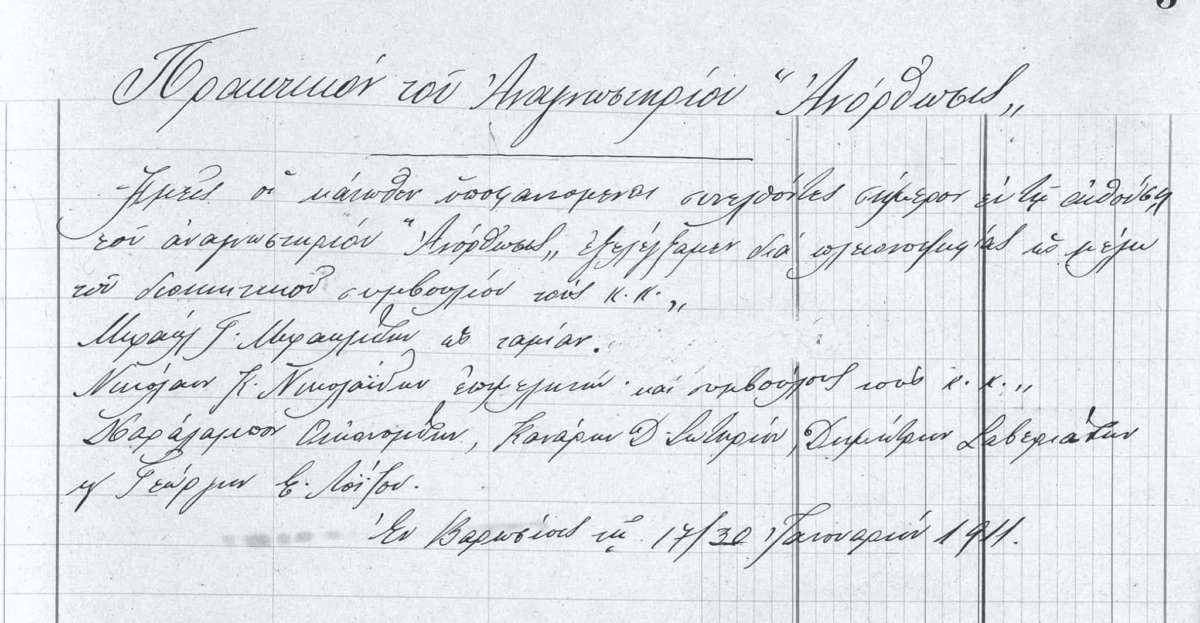 Πρακτικὸν τοῦ Ἀναγνωστηρίου “Ἀνόρθωσις„
Ἡμεῖς οἱ κάτωθεν ὑποφαινόμενοι συνελθόντες σήμερον ἐν τῇ αἰθούσῃ
τοῦ ἀναγνωστηρίου “Ἀνόρθωσις„ ἐξελέξαμεν διὰ πλειονοψηφίας ὡς μέλη
τοῦ διοικητικοῦ συμβουλίου τοὺς κ. κ. „
Μιχαὴλ Γ. Μιχαηλίδην ὡς ταμίαν.
Νικόλαον Κ. Νικολαΐδην ἐπιμελητὴν καὶ συμβούλους τοὺς κ. κ. „
Χαράλαμπον Οἰκονομίδην, Κανάριν Δ. Σωτηρίου, Δημήτριον
Γεώργιον Ε. Λοΐζου.
Ἐν Βαρωσίοις τῇ 17/30 Ἰανουαρίου 1911.